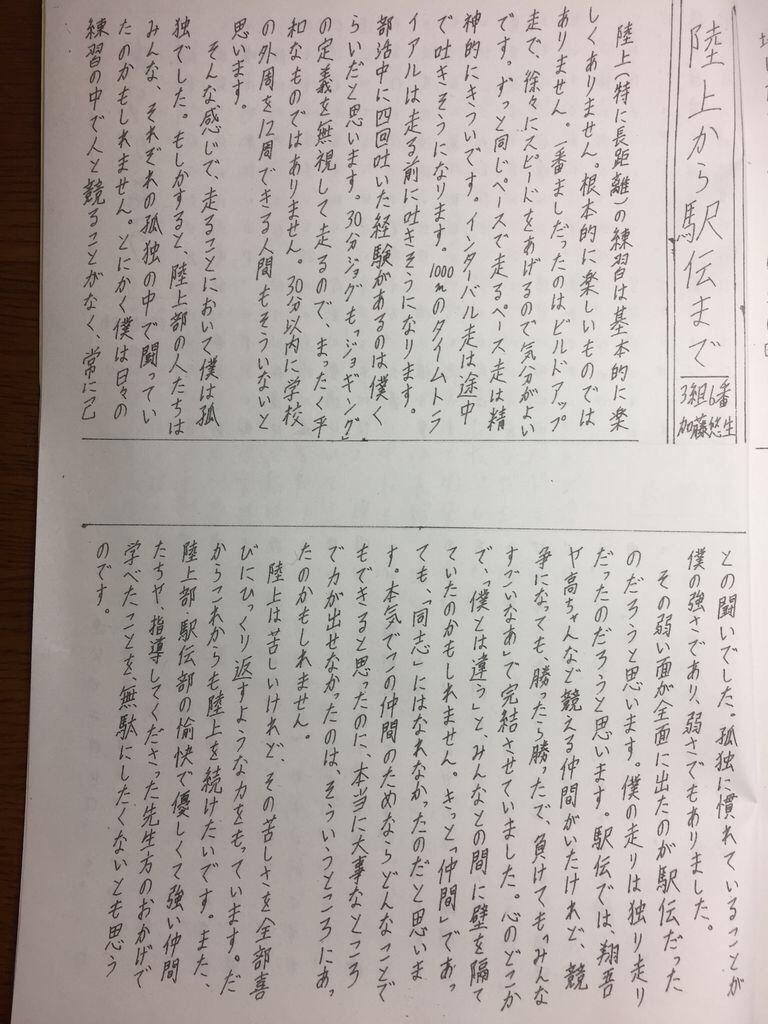 陸上から駅伝まで
3組6番
加藤悠生
陸上(特に長距離)の練習は基本的に楽
しくありません。根本的に楽しいものでは
ありません。一番ましだったのはビルドアップ
走で、徐々にスピードをあげるので気分がよい
です。ずっと同じペースで走るペース走は精
神的にきついです。インターバル走は途中
で吐きそうになります。1000mのタイムトラ
イアルは走る前に吐きそうになります。
部活中に四回吐いた経験があるのは僕く
らいだと思います。30分ジョグも「ジョギング」
の定義を無視して走るので、まったく平
和なものではありません。30分以内に学校
の外周を12周できる人間もそういないと
思います。
そんな感じで、走ることにおいて僕は孤
独でした。もしかすると、陸上部の人たちは
みんな、それぞれの孤独の中で闘ってい
たのかもしれません。とにかく僕は日々の
練習の中で人と競ることがなく、常に己
との闘いでした。孤独に慣れていることが
僕の強さであり、弱さでもありました。
その弱い面が全面に出たのが駅伝だった
のだろうと思います。僕の走りは独り走り
だったのだろうと思います。駅伝では、翔吾
や高ちゃんなど競える仲間がいたけれど、競
争になっても、勝ったら勝ったで、負けても「みんな
すごいなあ」で完結させていました。心のどこか
で、「僕とは違う」と、みんなとの間に壁を隔て
ていたのかもしれません。きっと「仲間」であっ
ても、「同志」にはなれなかったのだと思いま
す。本気でこの仲間のためならどんなことで
もできると思ったのに、本当に大事なところ
で力が出せなかったのは、そういうところにあっ
たのかもしれません。
陸上は苦しいけれど、その苦しさを全部喜
びにひっくり返すような力をもっています。だ
からこれからも陸上を続けたいです。また、
陸上部・駅伝部の愉快で優しくて強い仲間
たちや、指導してくださった先生方のおかげで
学べたことを、無駄にしたくないとも思う
のです。